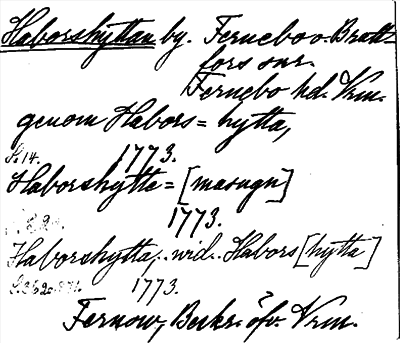 Haborshyttan by. Fernebo o. Bratt-
fors snr.
Fernebo hd. Vrm.
genom Habors = hytta,
S. 14. 1773.
Haborshytte = [masugn]
1773.
Haborshytta, .. wid. Habors [hytta]
1773.
Fernow, Beskr. öfv. Vrm.